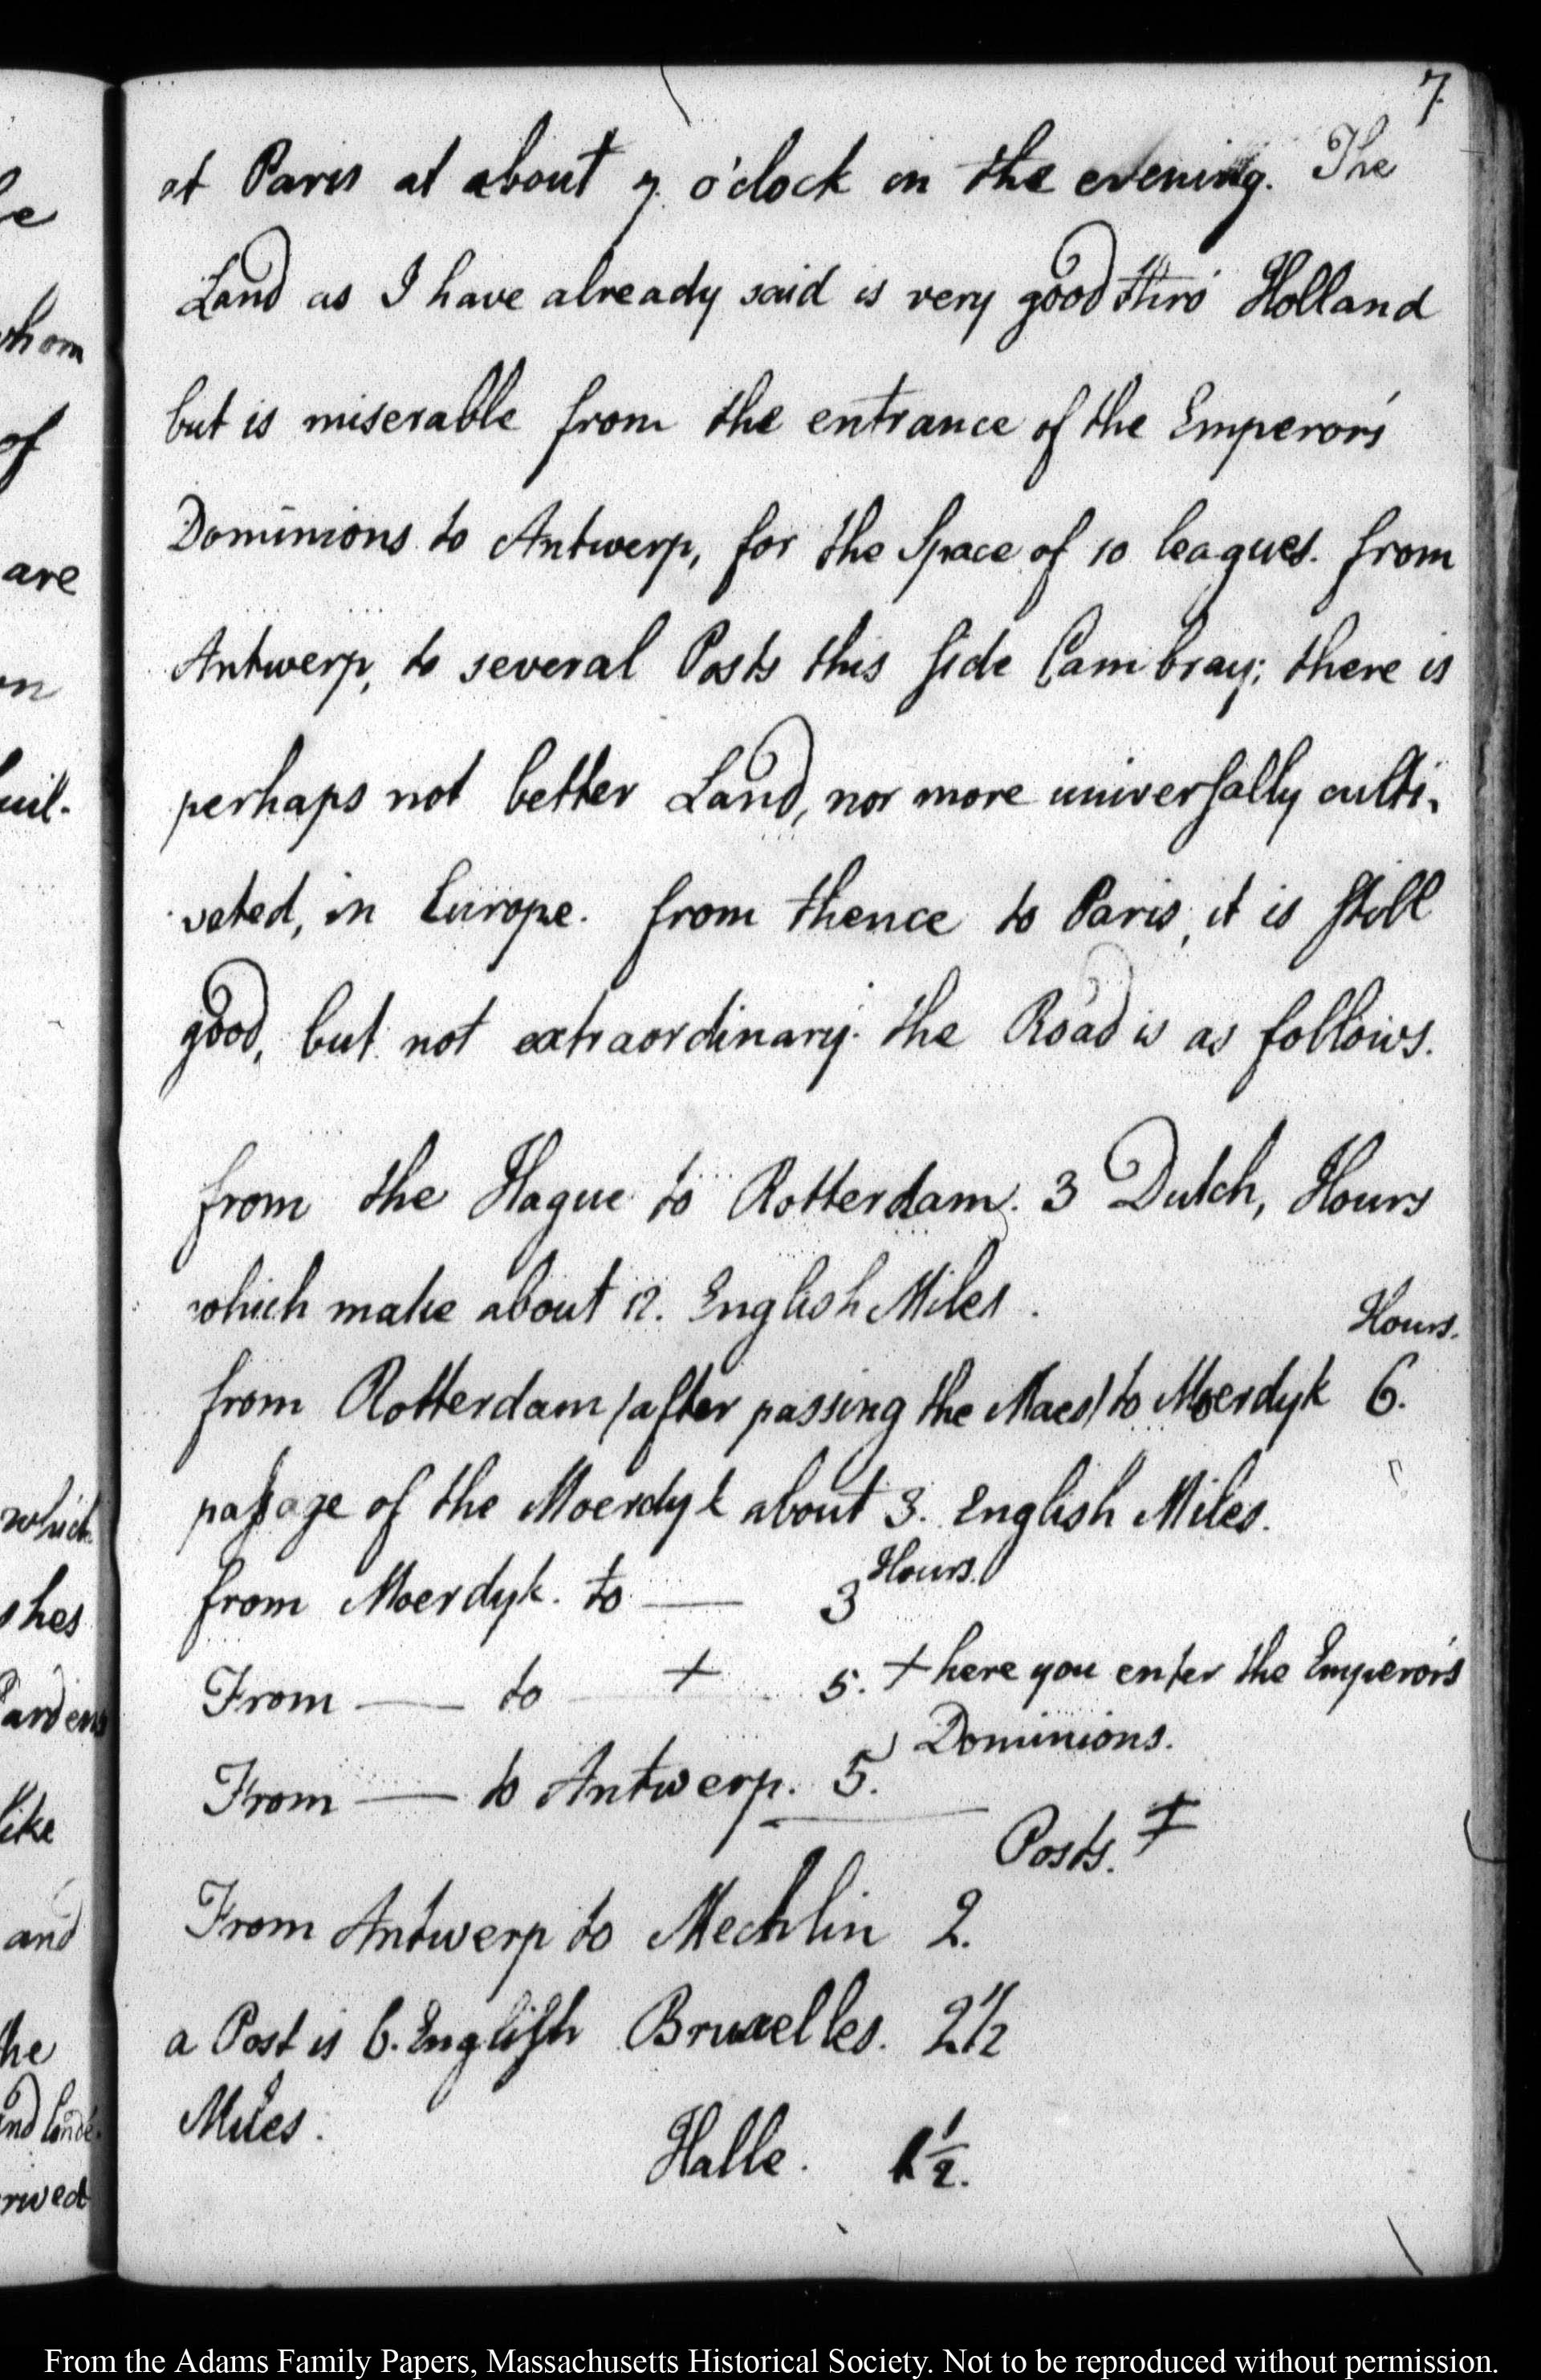 7.
at Paris at about 7. o'clock in the evening. The
Land as I have already said is very good thro' Holland
but is miserable from the entrance of the Emperor's
Dominions to Antwerp, for the Space of 10 leagues. from
Antwerp, to several Posts this side Cambray; there is
perhaps not better Land, nor more universally culti-
vated, in Europe. from thence to Paris, it is still
good, but not extraordinary. the Road is as follows.
from the Hague to Rotterdam. 3 Dutch, Hours
which make about 12. English Miles.
Hours.
from Rotterdam (after passing the Maes) to Moerdyk 6.
passage of the Moerdyk about 3. English Miles.
from Moerdyk. to — 3 Hours.
From — to — + 5. + here you enter the Emperor's
Dominions.
From — to Antwerp. 5.
Posts. ‡
From Antwerp to Mechlin 2.
a Post is 6. English Bruxelles. 2 1/2
Miles.
Halle. 1 1/2.
le
whom
of
are
on
uil-
which
shes
Gardens
like
and
the
rwed
From the Adams Family Papers, Massachusetts Historical Society. Not to be reproduced without permission.